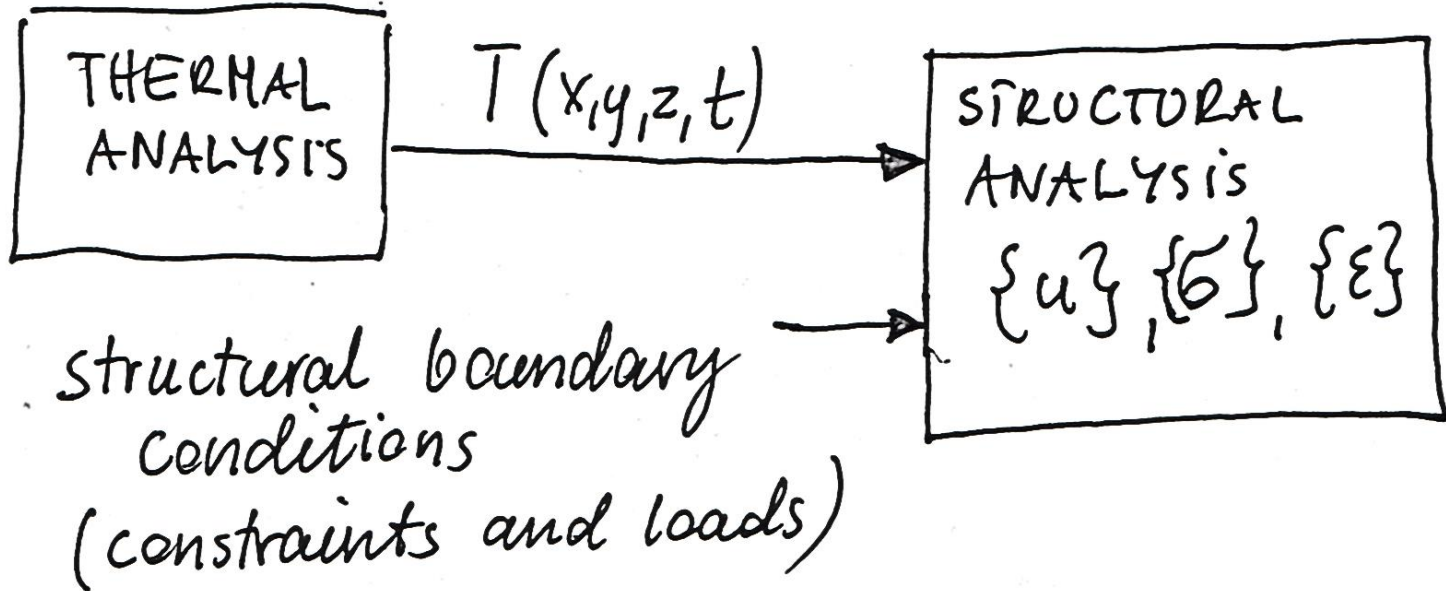 THERMAL
ANALYSIS
T(x,y,z,t)
STRUCTURAL
ANALYSIS
{u},{σ},{ε}
structural boundary
conditions
(constraints and loads)